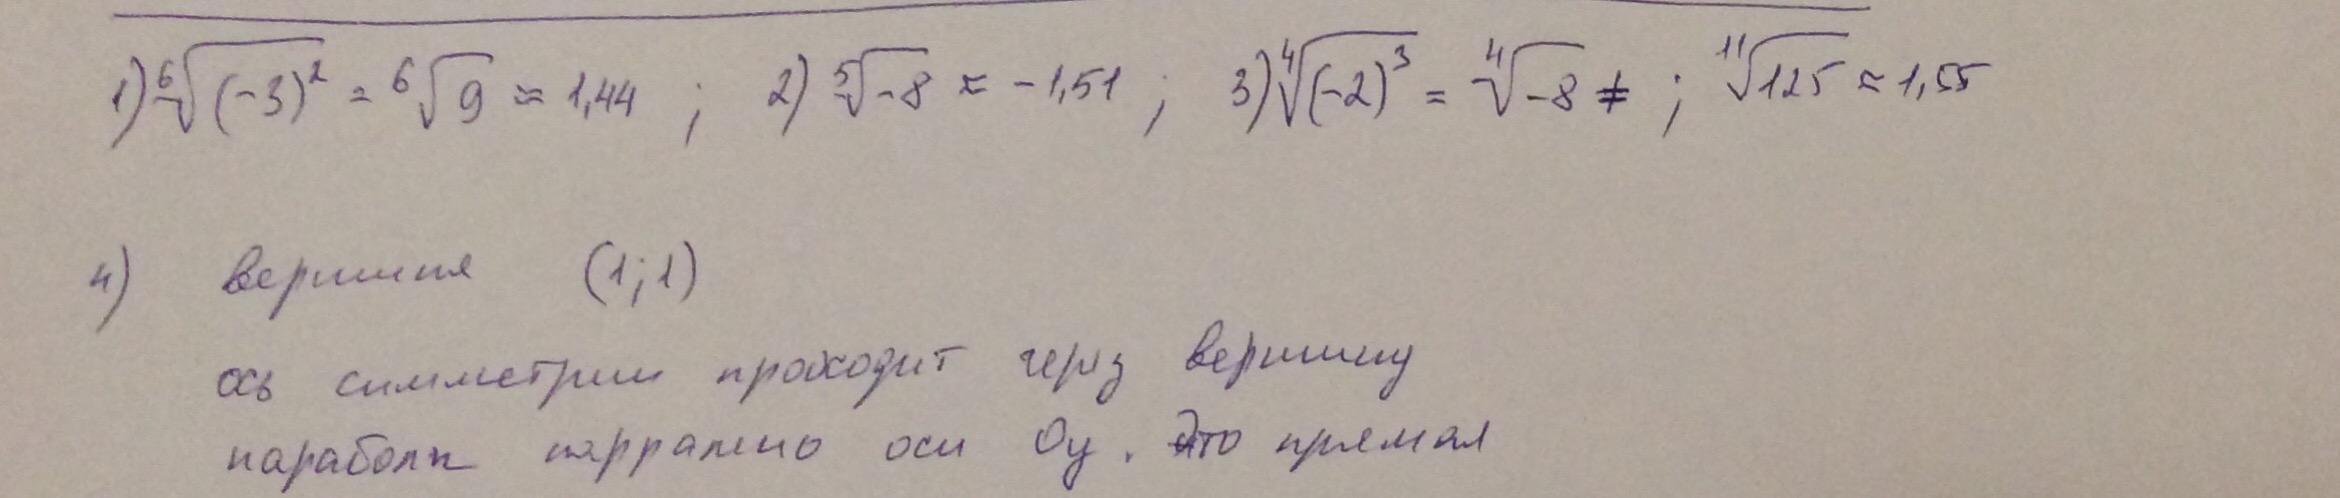 1) ⁶√(-3)² = ⁶√9 ≈ 1,44 ; 2) ⁵√-8 ≈ -1,51 ; 3) ⁴√(-2)³ = ⁴√-8 ≠ ; ¹¹√125 ≈ 1,55
4) вершина (1;1)
ось симметрии проходит через вершину
параболы паррално оси Оу. Это прямая